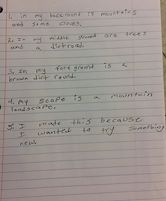 1. in my background is mountains
and some clouds.
2. In my middle ground are trees
and a dirt road.
3. In my fore ground is a
brown dirt road.
4. My scape is a mountain
landscape.
5. I made this because
I wanted to try something
new.